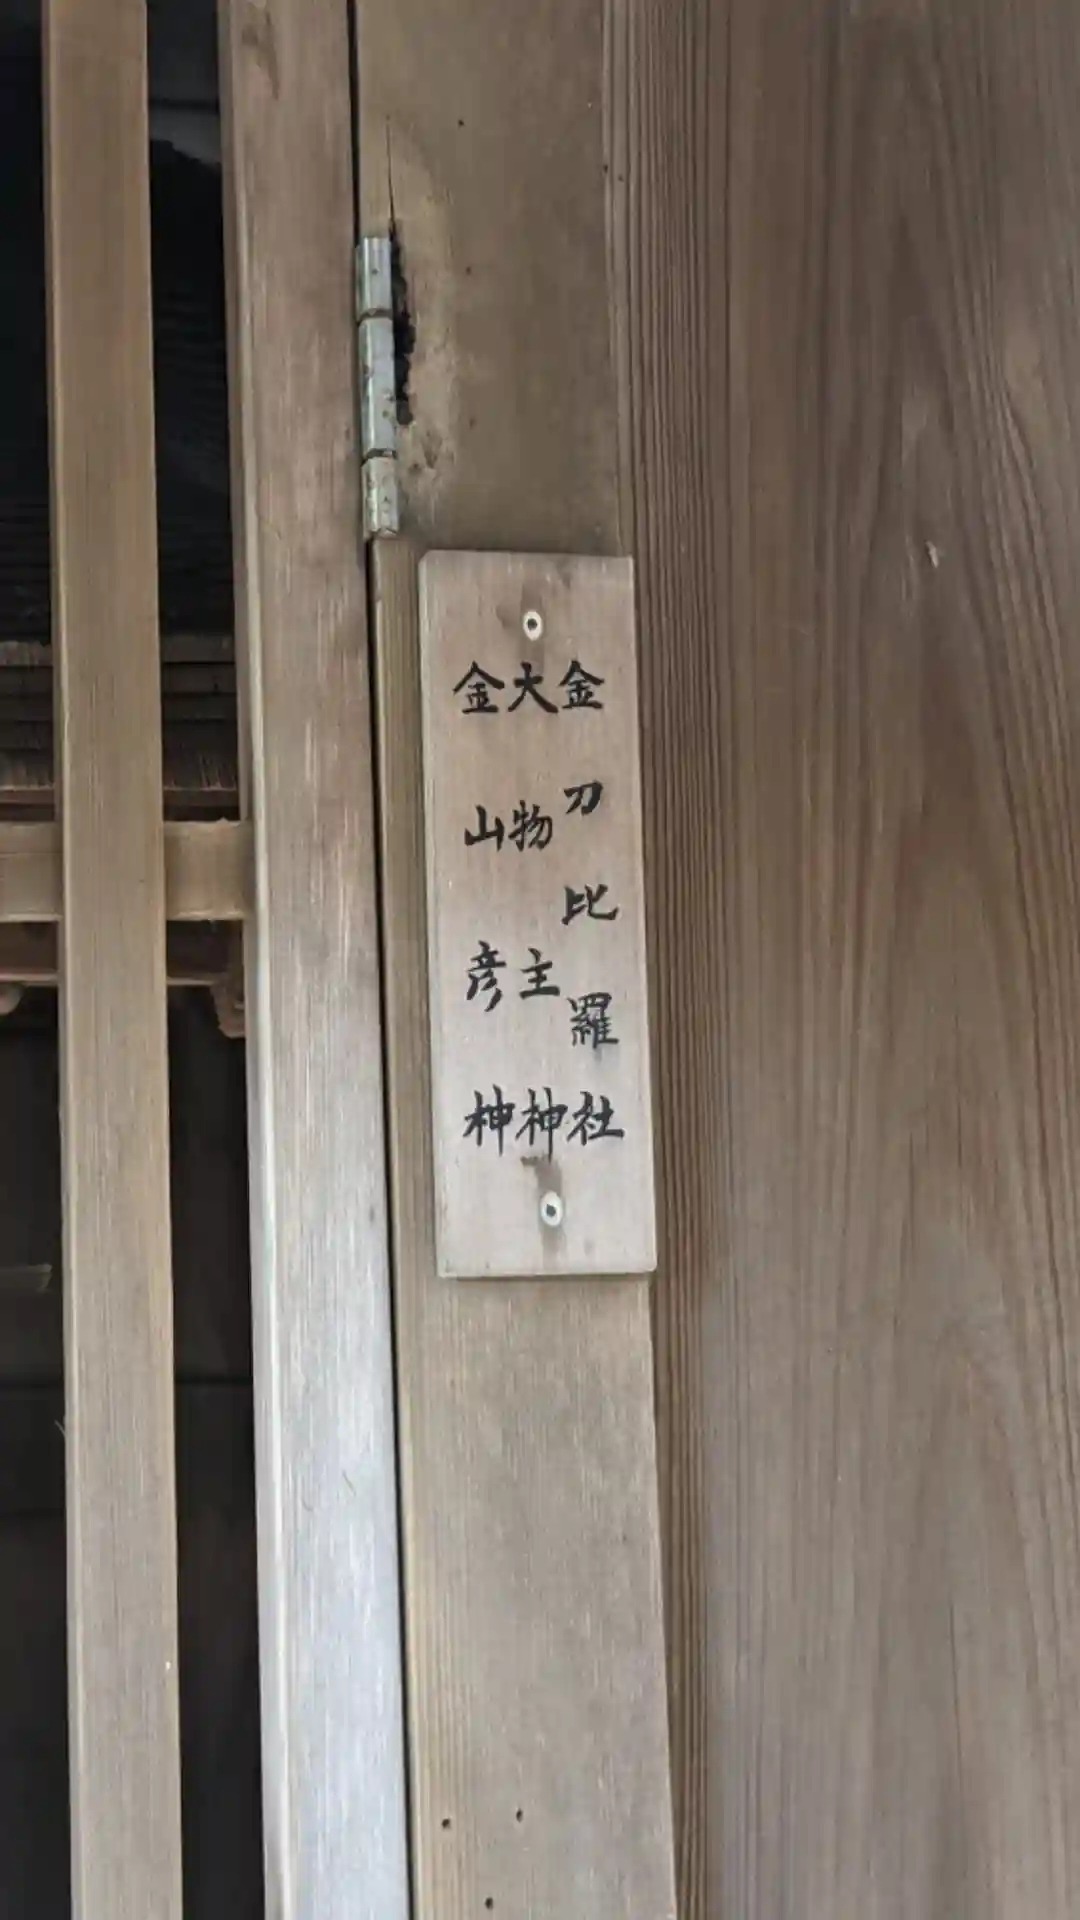 金刀比羅社
大物主神
金山彦神